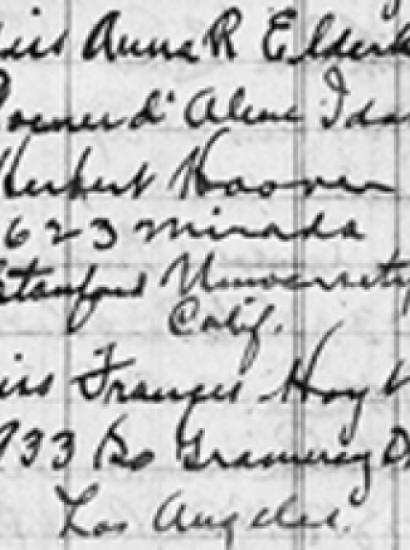 Miss Anna R Elder
Coeur d'Alene Ida
Herbert Hoover
623 Mirada
Stanford University
Calif.
Miss Frances Hoyt
933 So Gramercy
Los Angeles.